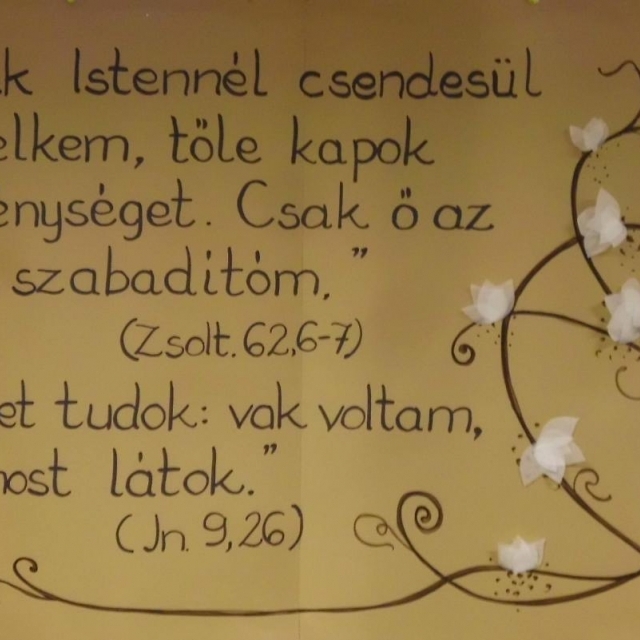 k Istennél csendesül
elkem, tőle kapok
enységet. Csak ő az
szabadítóm."
(Zsolt. 62,6-7)
et tudok: vak voltam,
ost látok."
(Jn. 9,26)